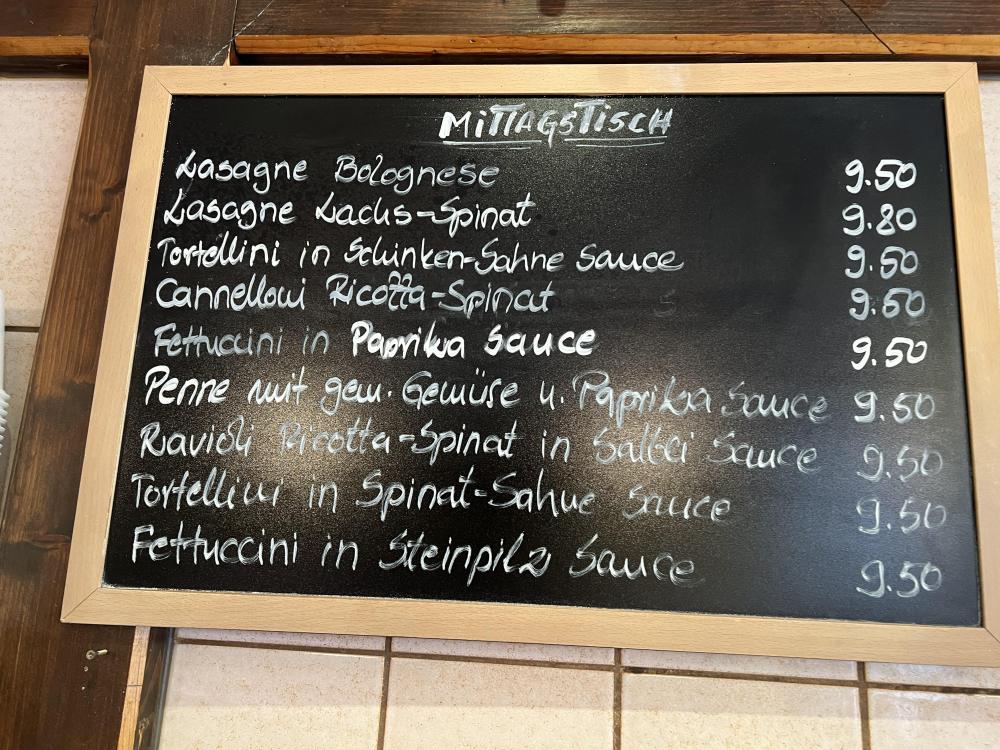 MITTAGSTISCH
Lasagne Bolognese 9.50
Lasagne Lachs-Spinat 9.80
Tortellini in Schinken-Sahne Sauce 9.50
Cannelloni Ricotta-Spinat 9.50
Fettuccini in Paprika Sauce 9.50
Penne mit gem. Gemüse u. Paprika Sauce 9.50
Ravioli Ricotta-Spinat in Salbei Sauce 9.50
Tortellini in Spinat-Sahne Sauce 9.50
Fettuccini in Steinpilz Sauce 9.50